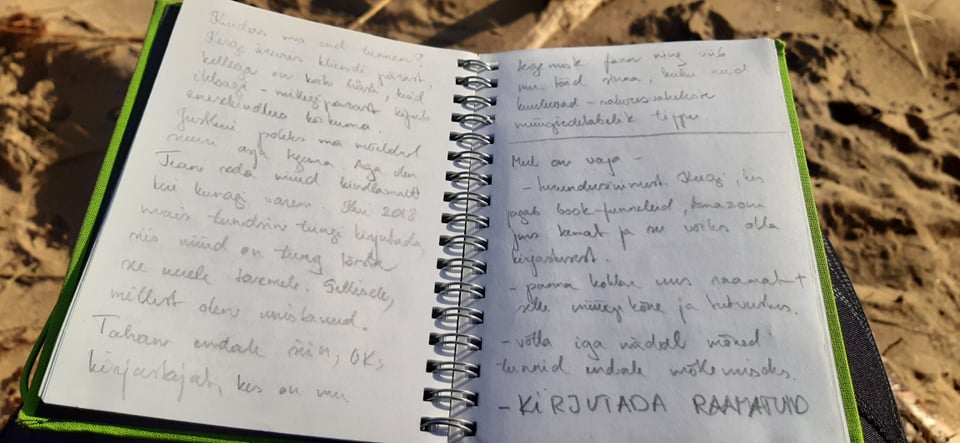 Kuidas ma end tunnen?
Keegi kliendi pärast,
kellega on kõik hästi, kuid
ikkagi - millegipärast kipub
enesekindlus kõikuma.
Justkui poleks ma mõeldud
suuri asju tegema. Aga olen
Tean seda nüüd kindlamalt
kui kunagi varem. Kui 2018
mais tundsin tungi kirjutada,
siis nüüd on tung tõusta
uuele tasemele. Sellisele,
millest olen unistanud.
Tahan endale siin, OKs
kirjastajat, kes on mu
suur fänn ning viib
mu tööd sinna, kuhu need
kuuluvad - rahvusvahelisse
müügiedetabelite tippu
Mul on vaja -
- turundusinimest. Keegi, kes
jagab book-funneleid, Amazoni
jms teemat ja see võiks olla
kirjastusest.
- panna kokku uus raamat +
selle müügikõne ja tutvustus.
- võtta iga nädal mõned
tunnid endale mõtlemiseks.
- KIRJUTADA RAAMATUID